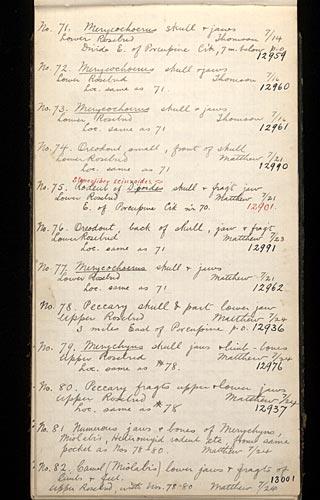 No. 71. Merycochoerus skull & jaws
Lower Rosebud Thomson 7/14
Divide E. of Porcupine Crk, 7 m. below p.o.
12959
No. 72. Merycochoerus skull & jaws
Lower Rosebud Thomson 7/16
Loc. same as 71. 12960
No. 73. Merycochoerus skull & jaws
Lower Rosebud Thomson 7/16
Loc. same as 71 12961
No. 74. Oreodont small, front of skull
Lower Rosebud Matthew 7/21
Loc. same as 71. 12990
No. 75. Rodent of skull & fragt jaw
Lower Rosebud Matthew 7/21
E. of Porcupine Crk in 70. 12901.
No. 76. Oreodont, back of skull, jaw & fragt
Lower Rosebud Matthew 7/23
Loc. same as 71 12991
No. 77. Merycochoerus skull & jaws
Lower Rosebud Matthew 7/21
Loc. same as 71 12962
No. 78. Peccary skull & part lower jaw
Upper Rosebud Matthew 7/24
3 miles East of Porcupine p.o. 12936
No. 79. Merychyus skull jaws & limb-bones
Upper Rosebud Matthew 7/24
Loc. same as #78. 12976
No. 80. Peccary fragts upper & lower jaws
Upper Rosebud Matthew 7/24
Loc. same as #78 12937
No. 81. Numerous jaws & bones of Merychyus,
Miolabis, Heteromyid rodent etc, from same
pocket as Nos 78-80. Matthew 7/24
No. 82. Camel (Miolabis) lower jaws & fragts of
limbs & feet. 13001
Upper Rosebud, with Nos. 78-80 Matthew 7/24